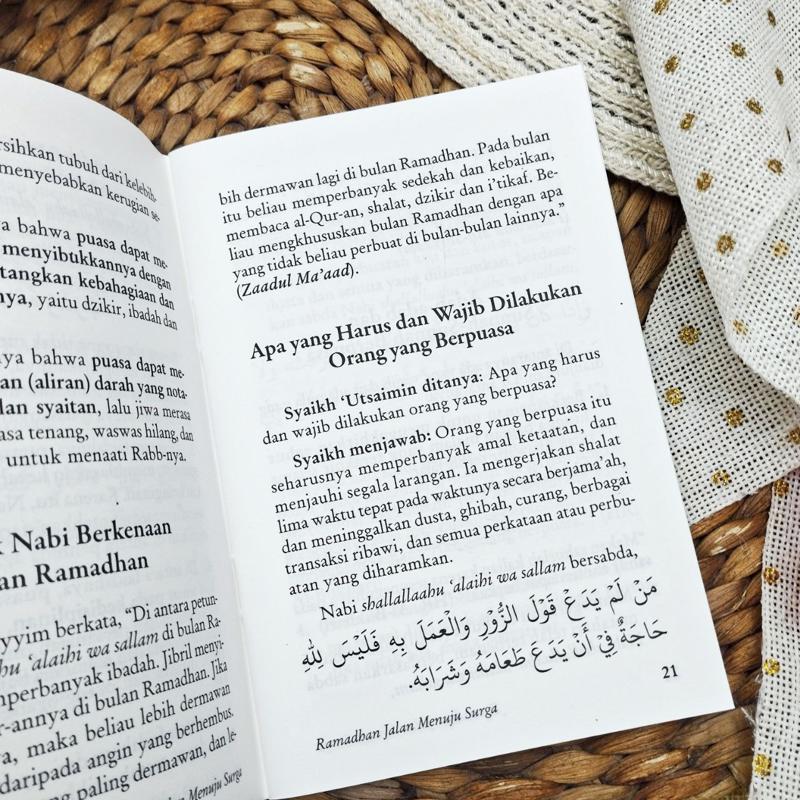 rsihkan tubuh dari kelebih-
menyebabkan kerugian se-
ya bahwa puasa dapat me-
menyibukkannya dengan
tangkan kebahagiaan dan
nya, yaitu dzikir, ibadah dan
ya bahwa puasa dapat me-
an (aliran) darah yang nota-
dan syaitan, lalu jiwa merasa
asa tenang, waswas hilang, dan
untuk menaati Rabb-nya.
Nabi Berkenaan
an Ramadhan
ayyim berkata, “Di antara petun-
hu ‘alaihi wa sallam di bulan Ra-
mperbanyak ibadah. Jibril menyi-
r-annya di bulan Ramadhan. Jika
ya, maka beliau lebih dermawan
daripada angin yang berhembus.
ng paling dermawan, dan le-
an Menuju Surga
bih dermawan lagi di bulan Ramadhan. Pada bulan
itu beliau memperbanyak sedekah dan kebaikan,
membaca al-Qur-an, shalat, dzikir dan i’tikaf. Be-
liau mengkhususkan bulan Ramadhan dengan apa
yang tidak beliau perbuat di bulan-bulan lainnya.”
(Zaadul Ma’aad).
Apa yang Harus dan Wajib Dilakukan
Orang yang Berpuasa
Syaikh ‘Utsaimin ditanya: Apa yang harus
dan wajib dilakukan orang yang berpuasa?
Syaikh menjawab: Orang yang berpuasa itu
seharusnya memperbanyak amal ketaatan, dan
menjauhi segala larangan. Ia mengerjakan shalat
lima waktu tepat pada waktunya secara berjama’ah,
dan meninggalkan dusta, ghibah, curang, berbagai
transaksi ribawi, dan semua perkataan atau perbu-
atan yang diharamkan.
Nabi shallallaahu ‘alaihi wa sallam bersabda,
مَنْ لَمْ يَدَعْ قَوْلَ الزُّوْرِ وَالْعَمَلَ بِهِ فَلَيْسَ لِلّٰهِ
حَاجَةٌ فِيْ أَنْ يَدَعَ طَعَامَهُ وَشَرَابَهُ.
21
Ramadhan Jalan Menuju Surga